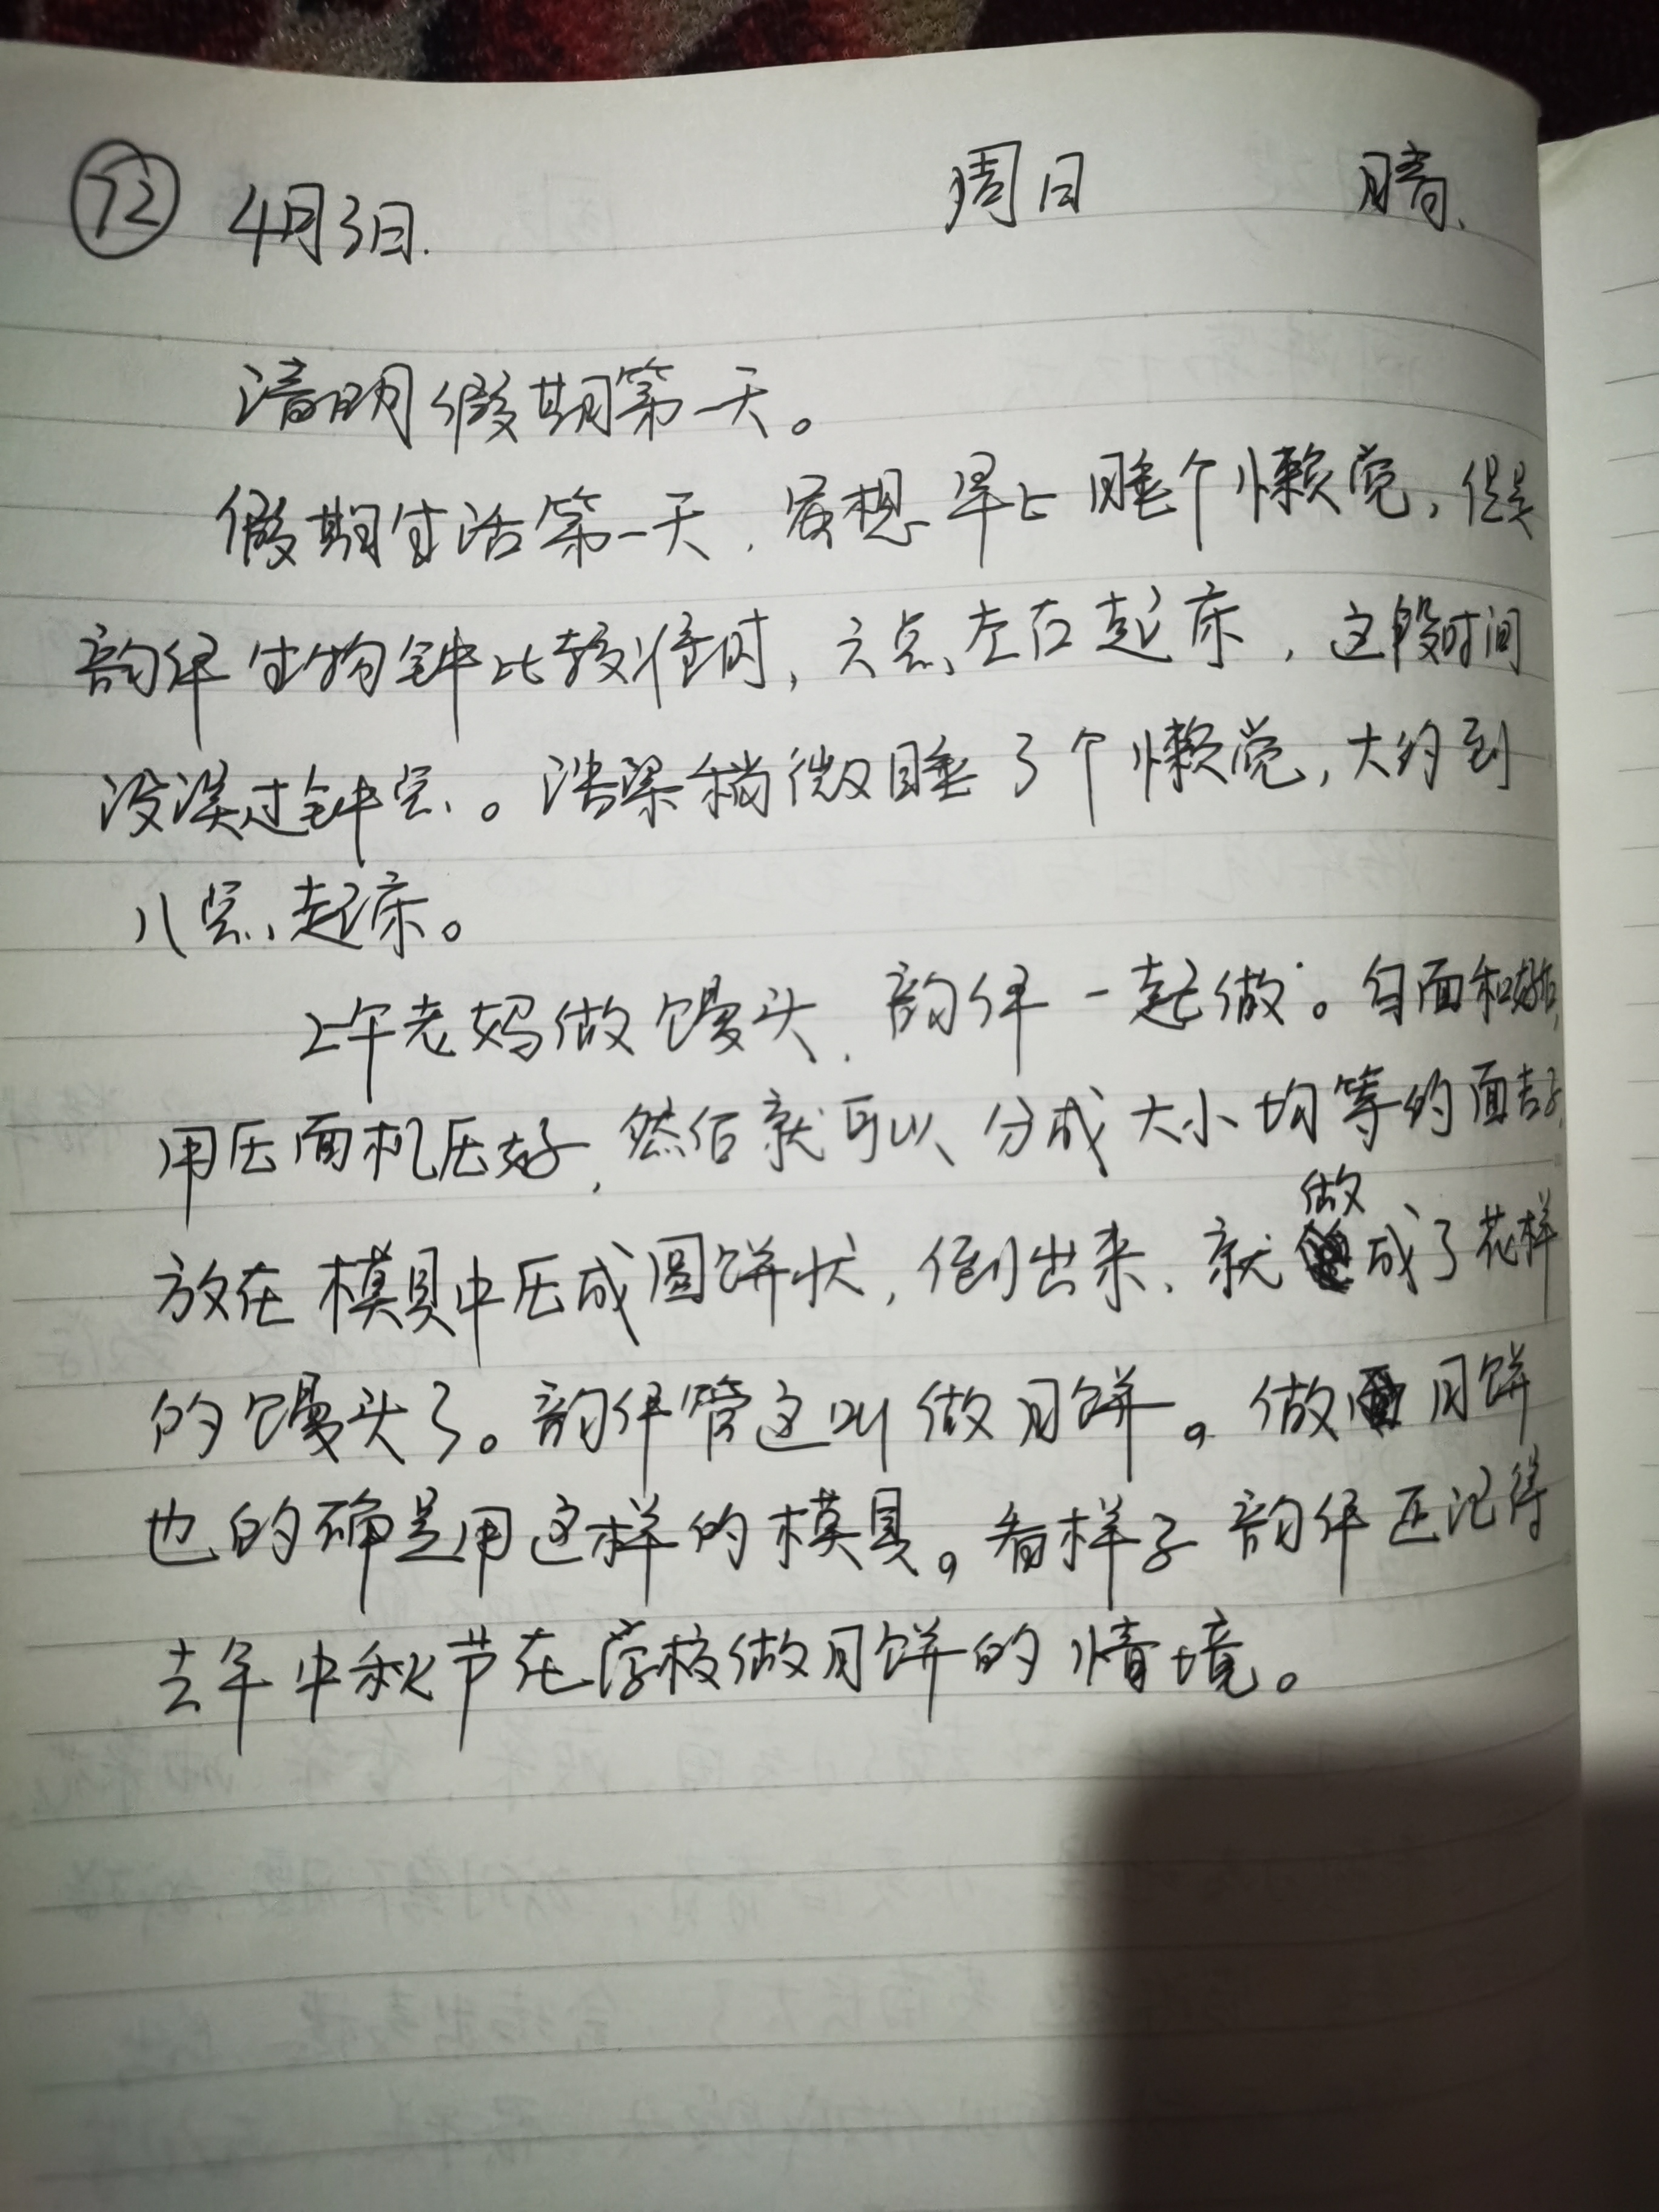 72 4月3日. 周日 晴.
清明假期第一天。
假期生活第一天，虽想早上睡个懒觉，但是
韵伊生物钟比较准时，六点左右起床，这段时间
没误过钟点。浩梁稍微睡了个懒觉，大约到
八点起床。
上午老妈做馒头，韵伊一起做。白面和好后，
用压面机压好，然后就可以分成大小均等的面
放在模具中压成圆饼状，倒出来，就做成了花样
的馒头了。韵伊管这叫做月饼。做月饼
也的确是用这样的模具。看样子韵伊还记得
去年中秋节在学校做月饼的情境。